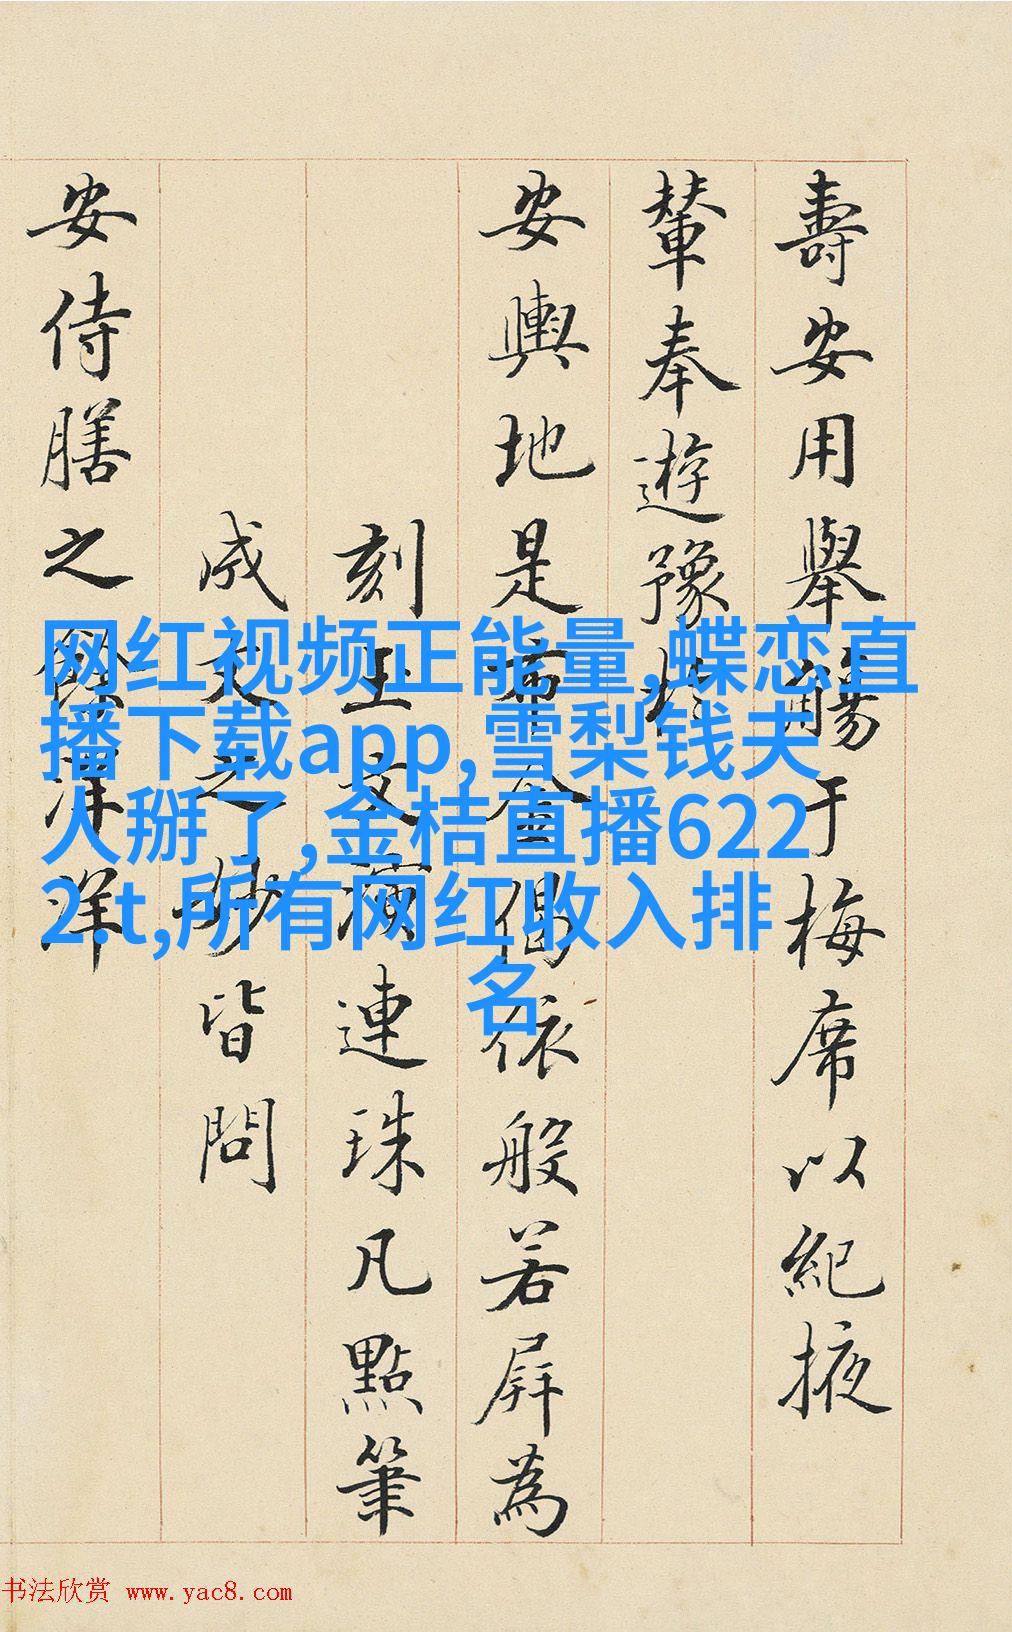 壽安用舉觴于梅席以紀掖
輦奉遊豫
安輿地是
偈依般若屏為
刻玉文
連珠凡點筆
成文之妙皆問
安侍膳之餘洋洋
网红视频正能量,蝶恋直
播下载app,雪梨钱夫
人掰了,金桔直播622
2.t,所有网红收入排
名
书法欣赏 www.yac8.com